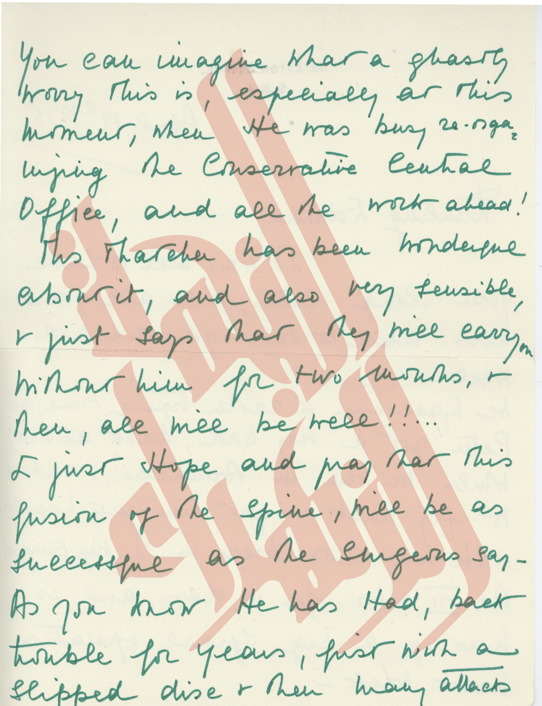 You can imagine what a ghastly
worry this is, especially at this
moment, when He was busy re-orga=
nizing the Conservative Central
Office, and all the work ahead!
Mrs Thatcher has been wonderful
about it, and also very sensible,
& just says that they will carry on
without him for two months, &
then, all will be well!!!...
I just Hope and pray that this
fusion of the Spine, will be as
successful as the Surgeons say -
As you know He has Had, back
trouble for years, first with a
slipped disc & then many attacks